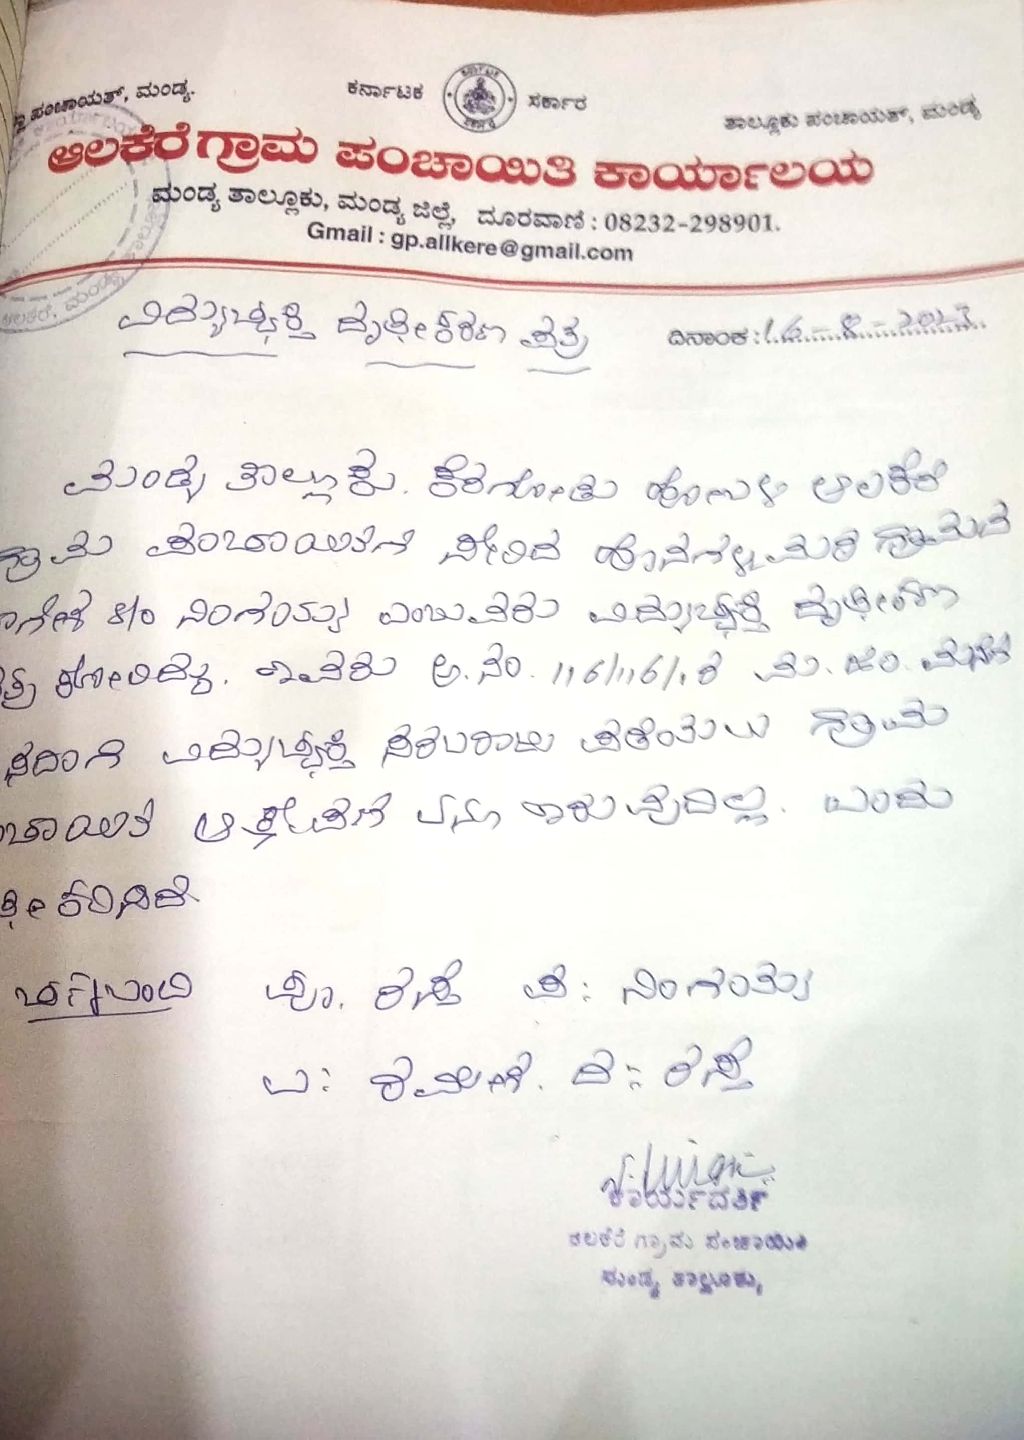 ಪಂಚಾಯತ್, ಮಂಡ್ಯ.
ಕರ್ನಾಟಕ ಸರ್ಕಾರ
ತಾಲ್ಲೂಕು ಪಂಚಾಯತ್, ಮಂಡ್ಯ
ಆಲಕೆರೆ ಗ್ರಾಮ ಪಂಚಾಯಿತಿ ಕಾರ್ಯಾಲಯ
ಮಂಡ್ಯ ತಾಲ್ಲೂಕು, ಮಂಡ್ಯ ಜಿಲ್ಲೆ, ದೂರವಾಣಿ : 08232-298901.
Gmail : gp.allkere@gmail.com
ವಿದ್ಯುಚ್ಛಕ್ತಿ ದೃಢೀಕರಣ ಪತ್ರ
ದಿನಾಂಕ :
ಮಂಡ್ಯ ತಾಲ್ಲೂಕು. ಕೆರಗೋಡು ಹೋಬಳಿ ಆಲಕೆರೆ
ಗ್ರಾಮ ಪಂಚಾಯಿತಿಗೆ ಸೇರಿದ ಗ್ರಾಮದ
S/o ನಿಂಗಯ್ಯ ಎಂಬುವರು ವಿದ್ಯುಚ್ಛಕ್ತಿ ದೃಢೀಕರಣ
ಕೋರಿದ್ದು. ಅ.ನಂ. 116/116/1 ರ
ವಿದ್ಯುಚ್ಛಕ್ತಿ ಸರಬರಾಜು ಪಡೆಯಲು ಗ್ರಾಮ
ಆಕ್ಷೇಪಣೆ ಇರುವುದಿಲ್ಲ. ಎಂದು
ಚಕ್ಕುಬಂದಿ ಪೂ. ರಸ್ತೆ ಪ: ನಿಂಗಯ್ಯ
ಉ: ದ: ರಸ್ತೆ
ಕಾರ್ಯದರ್ಶಿ
ಆಲಕೆರೆ ಗ್ರಾಮ ಪಂಚಾಯಿತಿ
ಮಂಡ್ಯ ತಾಲ್ಲೂಕು